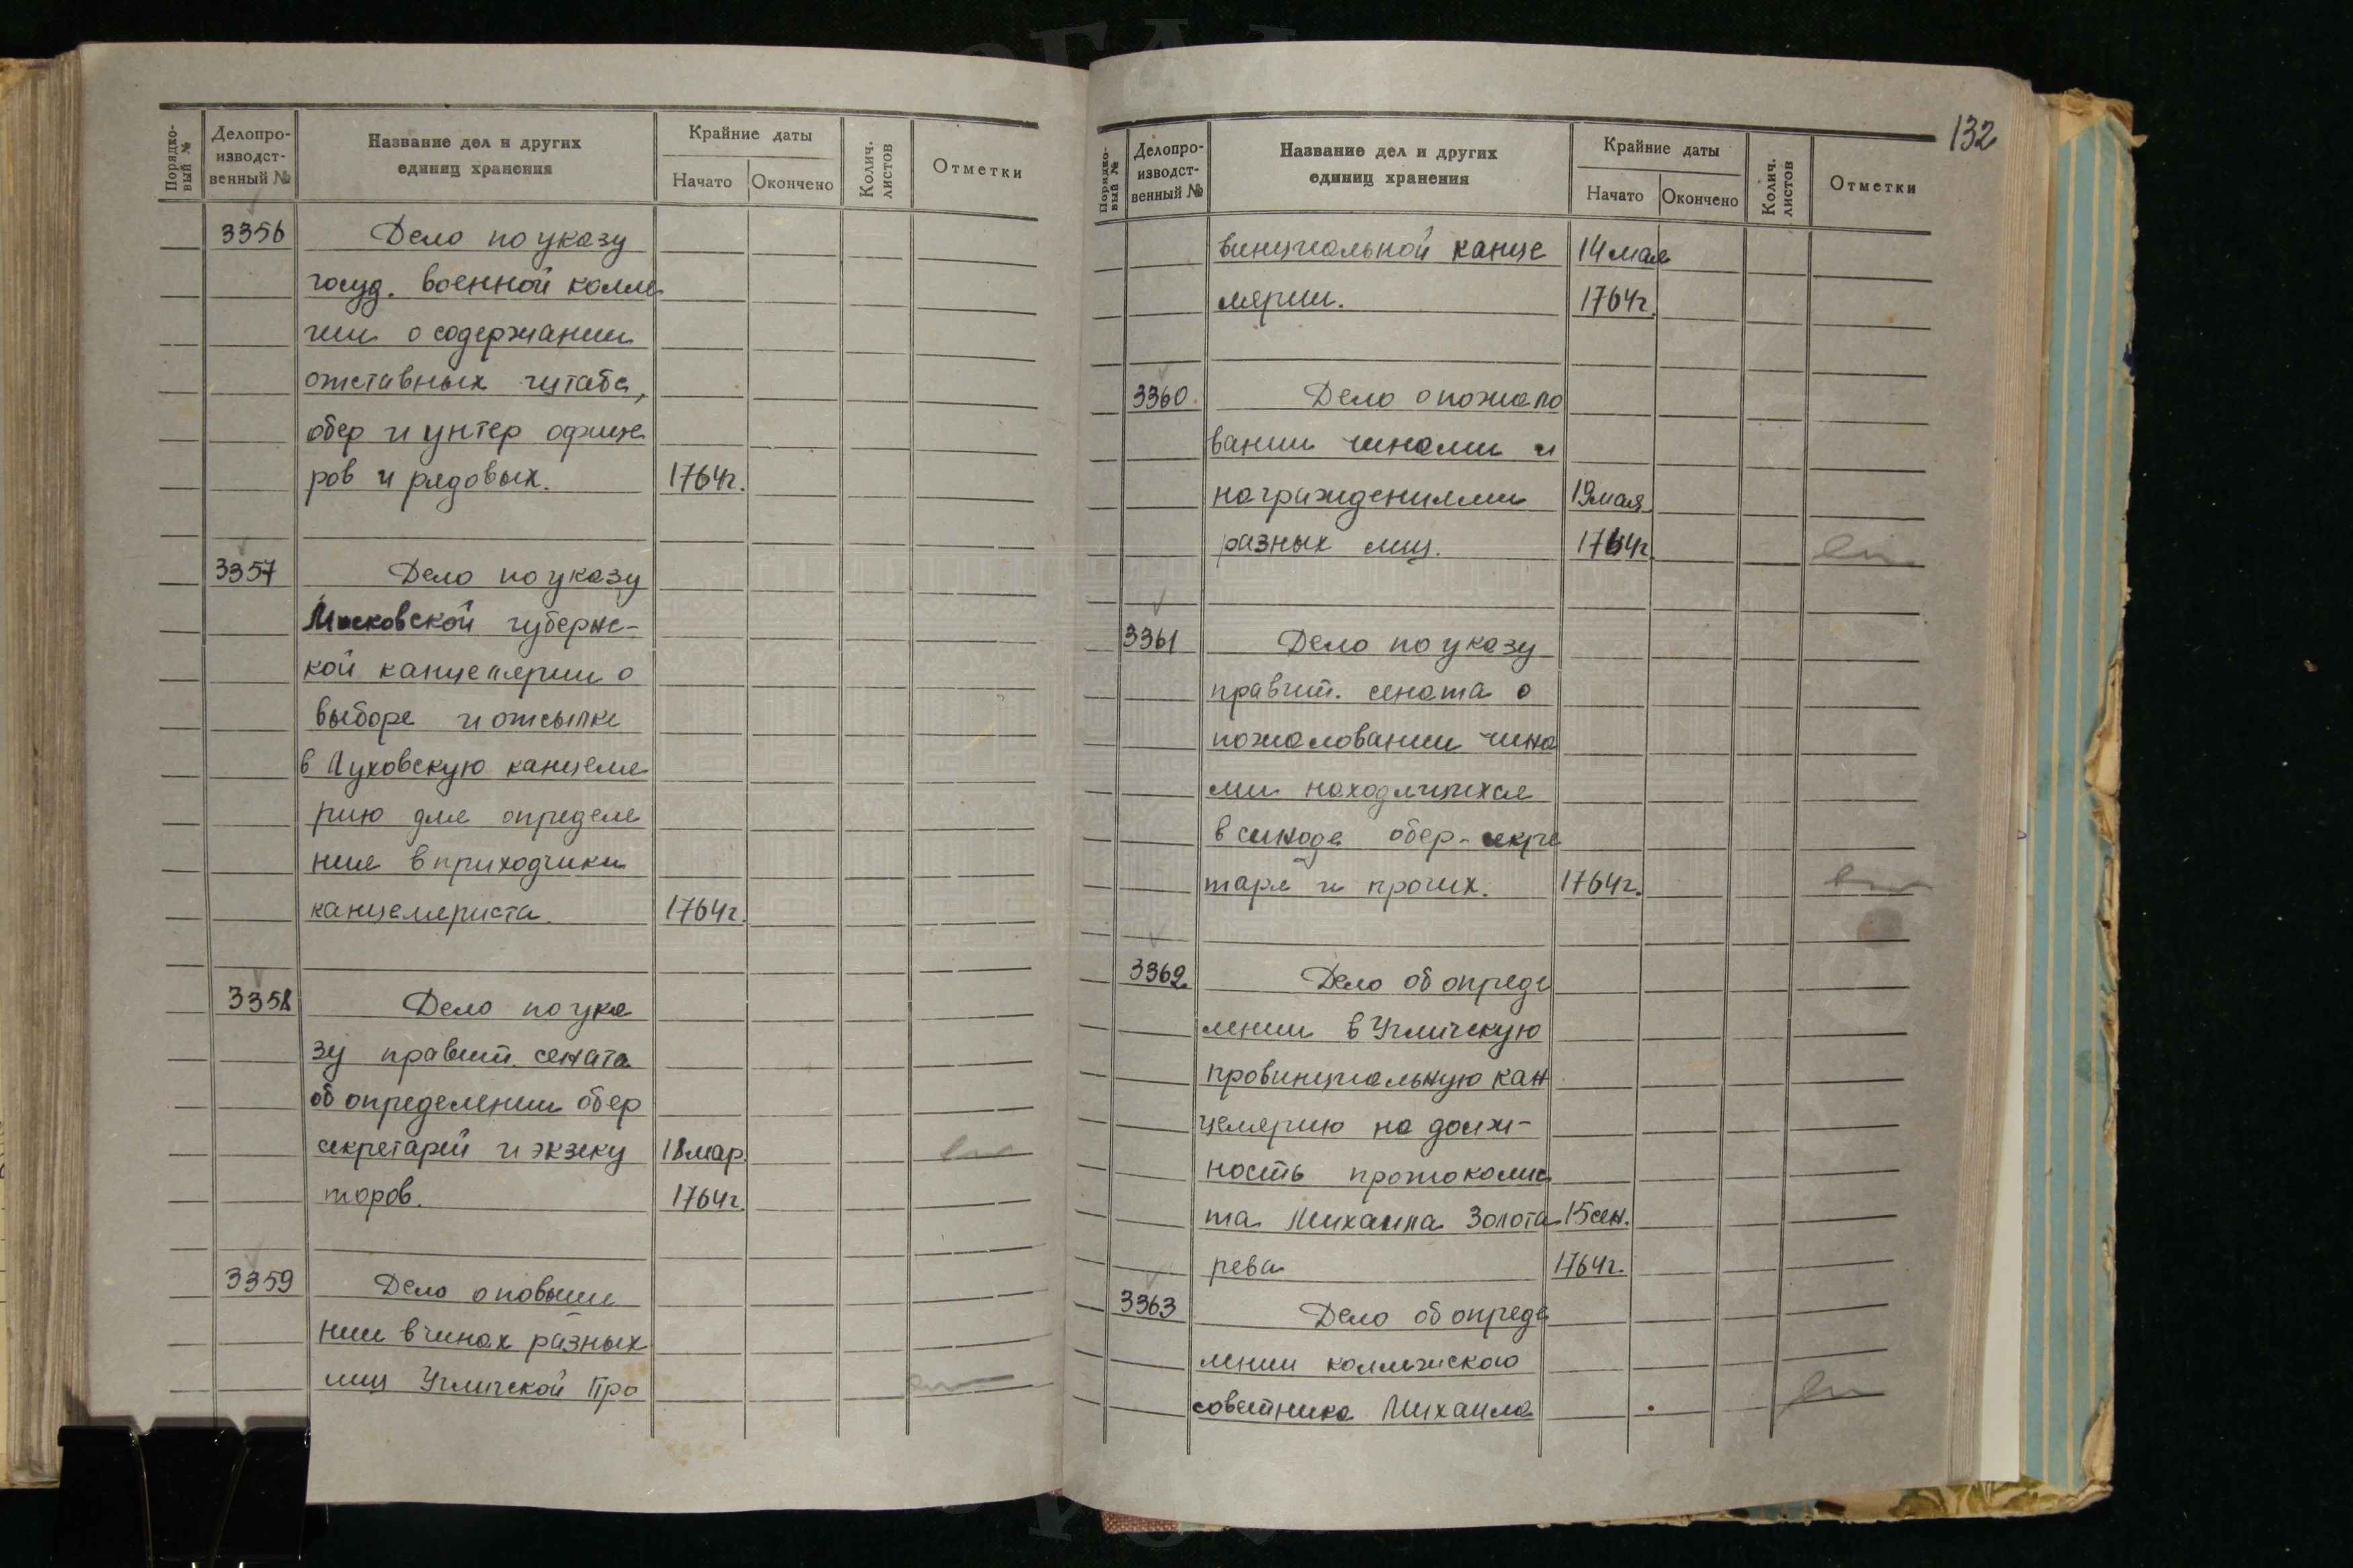 Порядко-
вый №
Делопро-
изводст-
венный №
Название дел и других
единиц хранения
Крайние даты
Начато
Окончено
Колич.
листов
Отметки
3356 Дело по указу
госуд. военной колле
гии о содержании
отставных штаба,
обер и унтер офице
ров и рядовых. 1764г.
3357 Дело по указу
Московской губернс-
кой канцелярии о
выборе и отсылке
в Луховскую канцеля
рию для определе
ния в приходчики
канцеляриста. 1764г.
3358 Дело по ука
зу правит. сената
об определении обер
секретарей и экзеку 18 мар.
торов. 1764г.
3359 Дело о повыше
нии в чинах разных
лиц Угличской Про
132
Порядко-
вый №
Делопро-
изводст-
венный №
Название дел и других
единиц хранения
Крайние даты
Начато
Окончено
Колич.
листов
Отметки
винциальной канце 14 мая
лярии. 1764г.
3360. Дело о пожало
вании чинами и
награждениями 19 мая
разных лиц. 1764г.
3361 Дело по указу
правит. сената о
пожаловании чина
ми находящихся
в синоде обер-секре
таря и прочих. 1764г.
3362 Дело об опреде
лении в Угличскую
провинциальную кан
целярию на долж-
ность протоколис
та Михаила Золота 15 сен.
рева 1764г.
3363 Дело об опреде
лении коллежского
советника Михаила